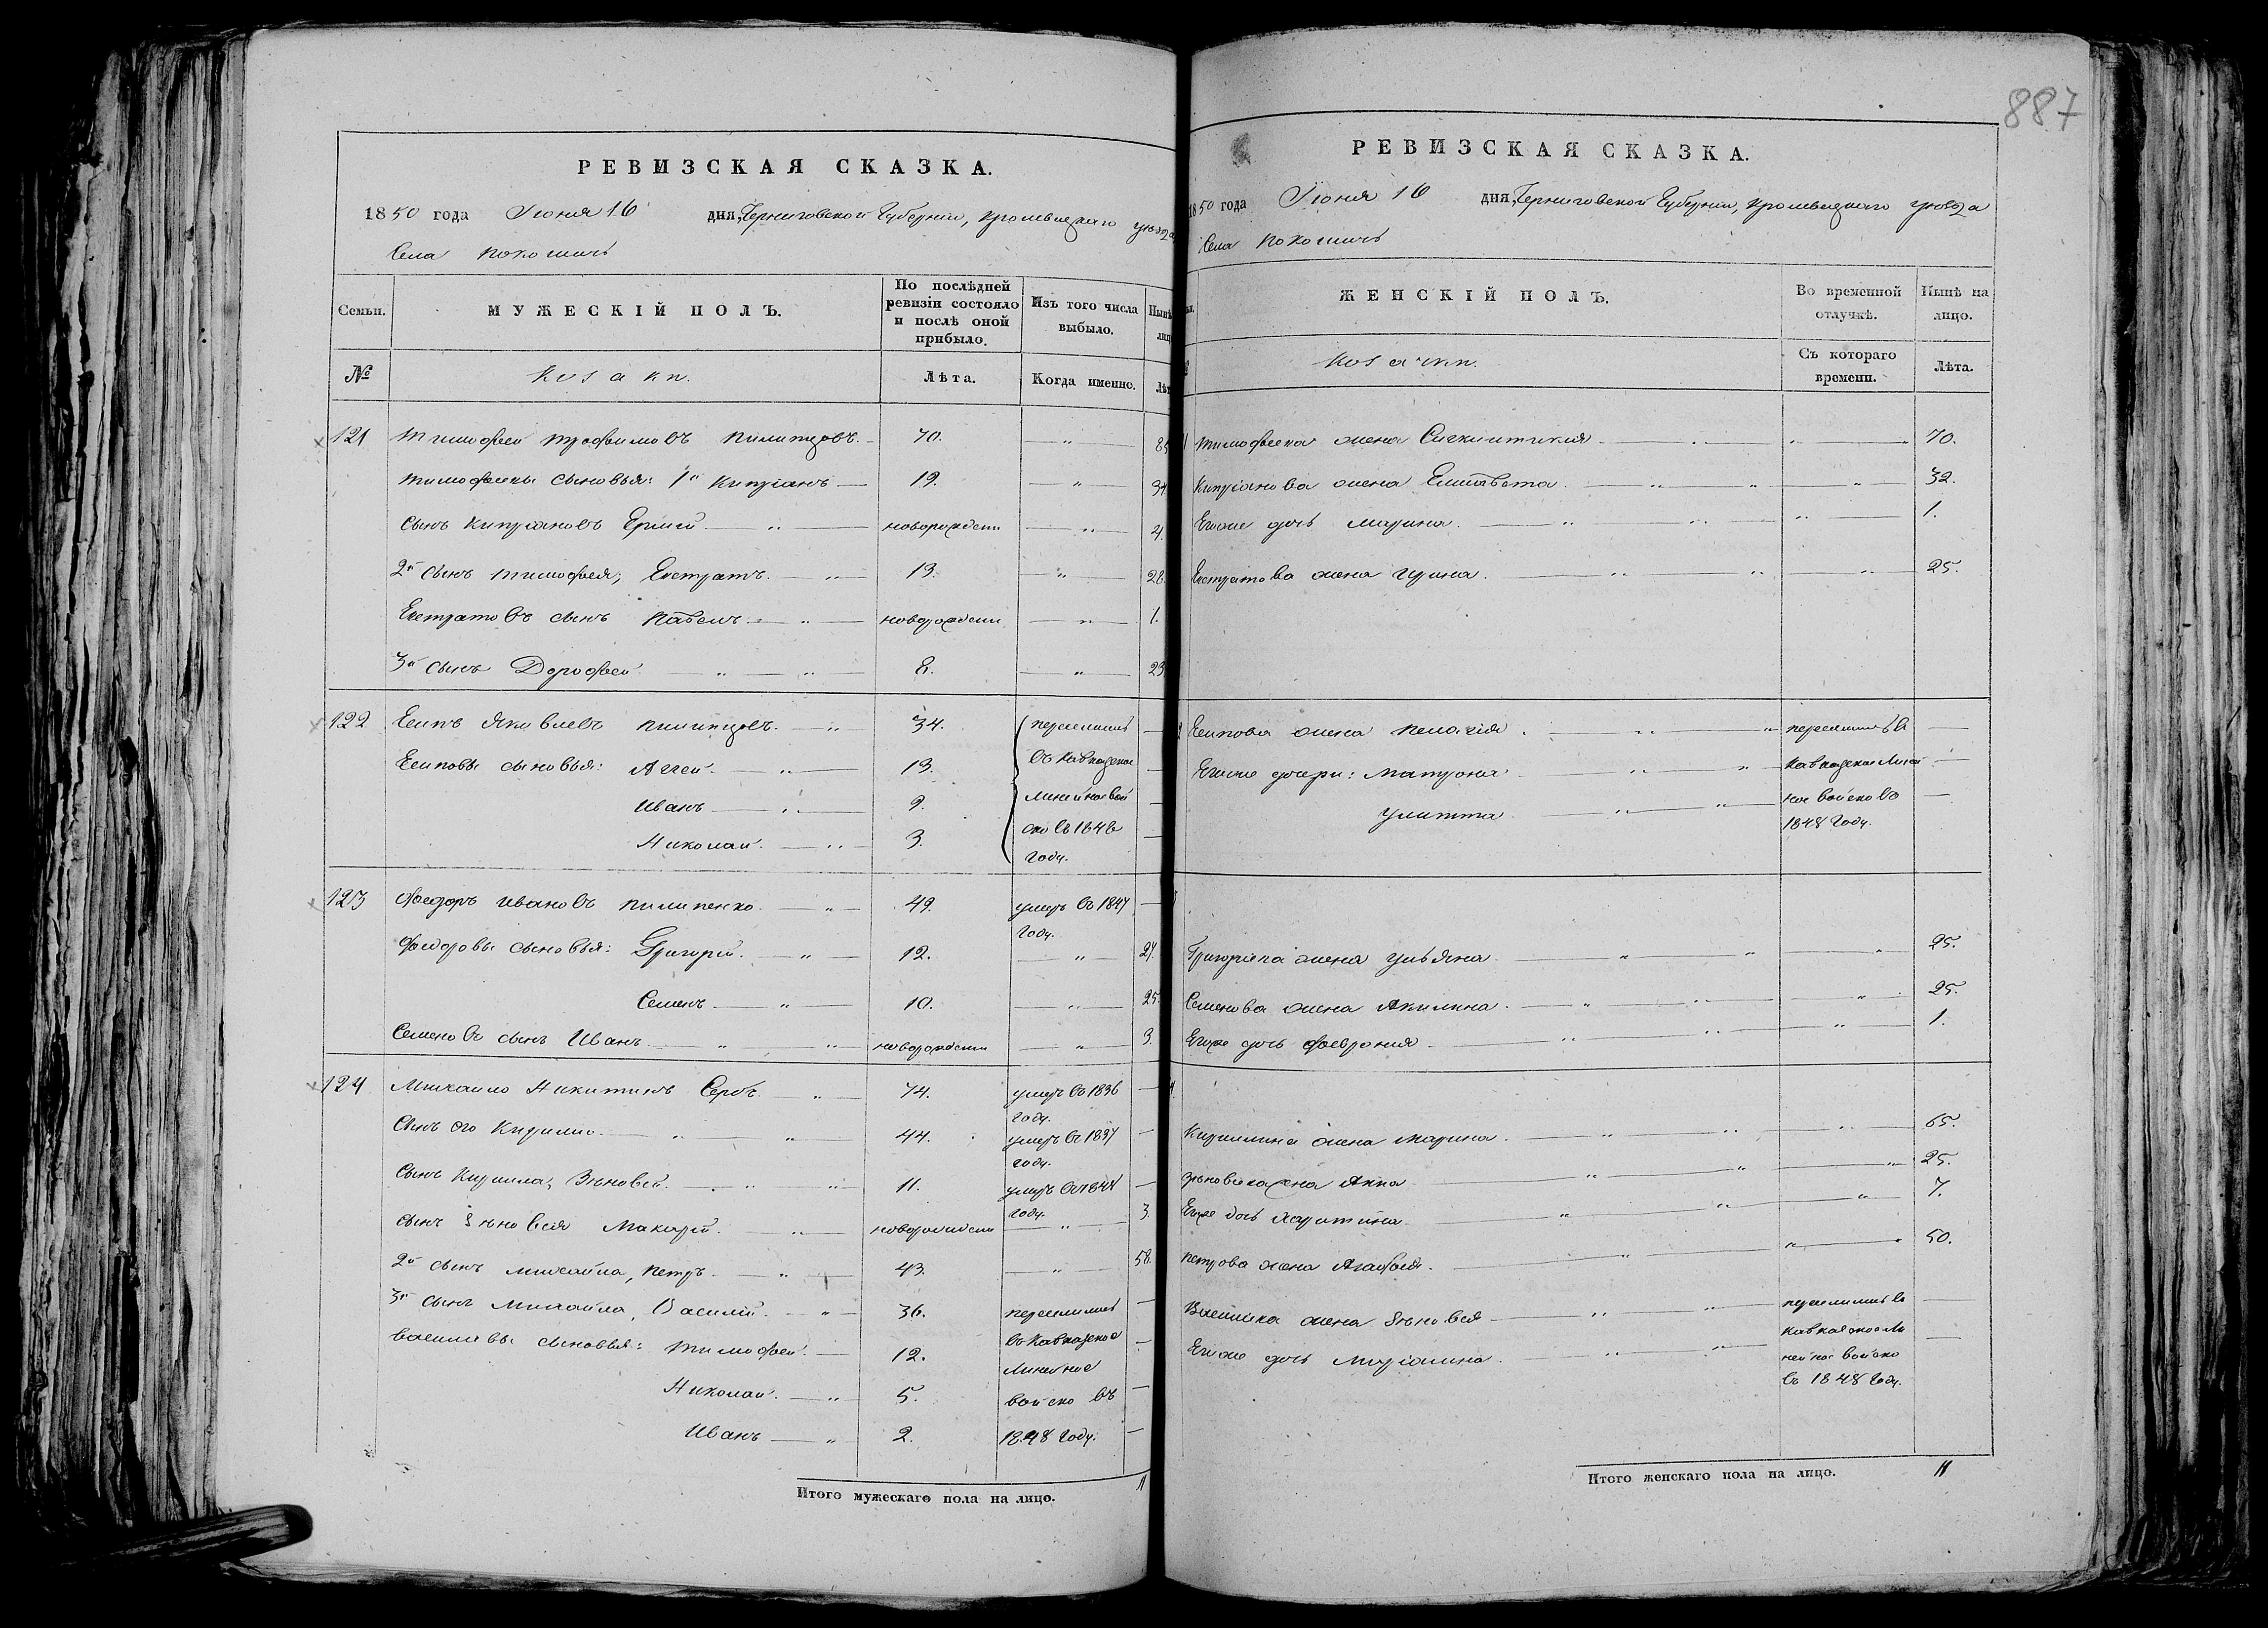 887
РЕВИЗСКАЯ СКАЗКА.
1850 года Іюня 16 дня, Черниговской Губерніи, Кролевецкаго уезда
Села Покошичь
Семьи. МУЖЕСКІЙ ПОЛЪ. По послѣдней ревизіи состояло и послѣ оной прибыло. Изъ того числа выбыло.
№ Козаки. Лѣта. Когда именно.
121 Тимофей Трофимовъ Пилипцовъ 70. "
Тимофеевы сыновья: 1й Кипріанъ 19. "
Сынъ Кипріановъ Ермій новорожден "
2й сынъ Тимофея, Евстратъ 13. " 28.
Евстратовъ сынъ Павелъ новорожден " 1.
3й сынъ Дорофей 8. " 23.
122 Есипъ Яковлевъ Пилипцовъ 34. переселились
Есиповы сыновья: Аггей 13. въ Кавказское
Иванъ 9. Линейное вой
Николай 3. ско въ 1848
году.
123 Феодоръ Ивановъ Пилипенко 49. умеръ въ 1847
году.
Феодоровы сыновья: Григорій 12. " 27.
Семенъ 10. " 25.
Семеновъ сынъ Иванъ новорожден " 3.
124 Михайло Никитинъ Сербъ 74. умеръ въ 1836
году.
Сынъ его Кирило 44. умеръ въ 1837
году.
Сынъ Кирила, Зѣновей 11. умеръ въ 1847
году.
Сынъ Зѣновея Макарій новорожден " 3.
2й сынъ Михайла, Петръ 43. " 58.
3й сынъ Михайла, Василій 36. переселились
Васильевы сыновья: Тимофей 12. въ Кавказское
Линейное
Николай 5. войско въ
Иванъ 2. 1848 году.
Итого мужескаго пола на лицо. 11
РЕВИЗСКАЯ СКАЗКА.
1850 года Іюня 16 дня, Черниговской Губерніи, Кролевецкаго уезда
Села Покошичь
ЖЕНСКІЙ ПОЛЪ. Во временной отлучкѣ. Нынѣ на лицо.
Козачки. Съ котораго времени. Лѣта.
Тимофеева жена 70.
Кипріанова жена Елисавета 32.
Егоже дочь Марина 1.
Евстратова жена Ирина 25.
Есипова жена Пелагія переселились въ
Егоже дочери: Матрона Кавказское Линей
Улитта ное войско въ
1848 году.
Григоріева жена Ульяна 25.
Семенова жена Акилина 25.
Егоже дочь Феврония 1.
Кирилина жена Марина 65.
Зѣновіева жена Анна 25.
Егоже дочь Харитина 7.
Петрова жена Агафия 50.
Васильева жена Зѣновея переселились въ
Кавказское Ли
Егоже дочь Маріамна нейное войско
въ 1848 году.
Итого женскаго пола на лицо. 11